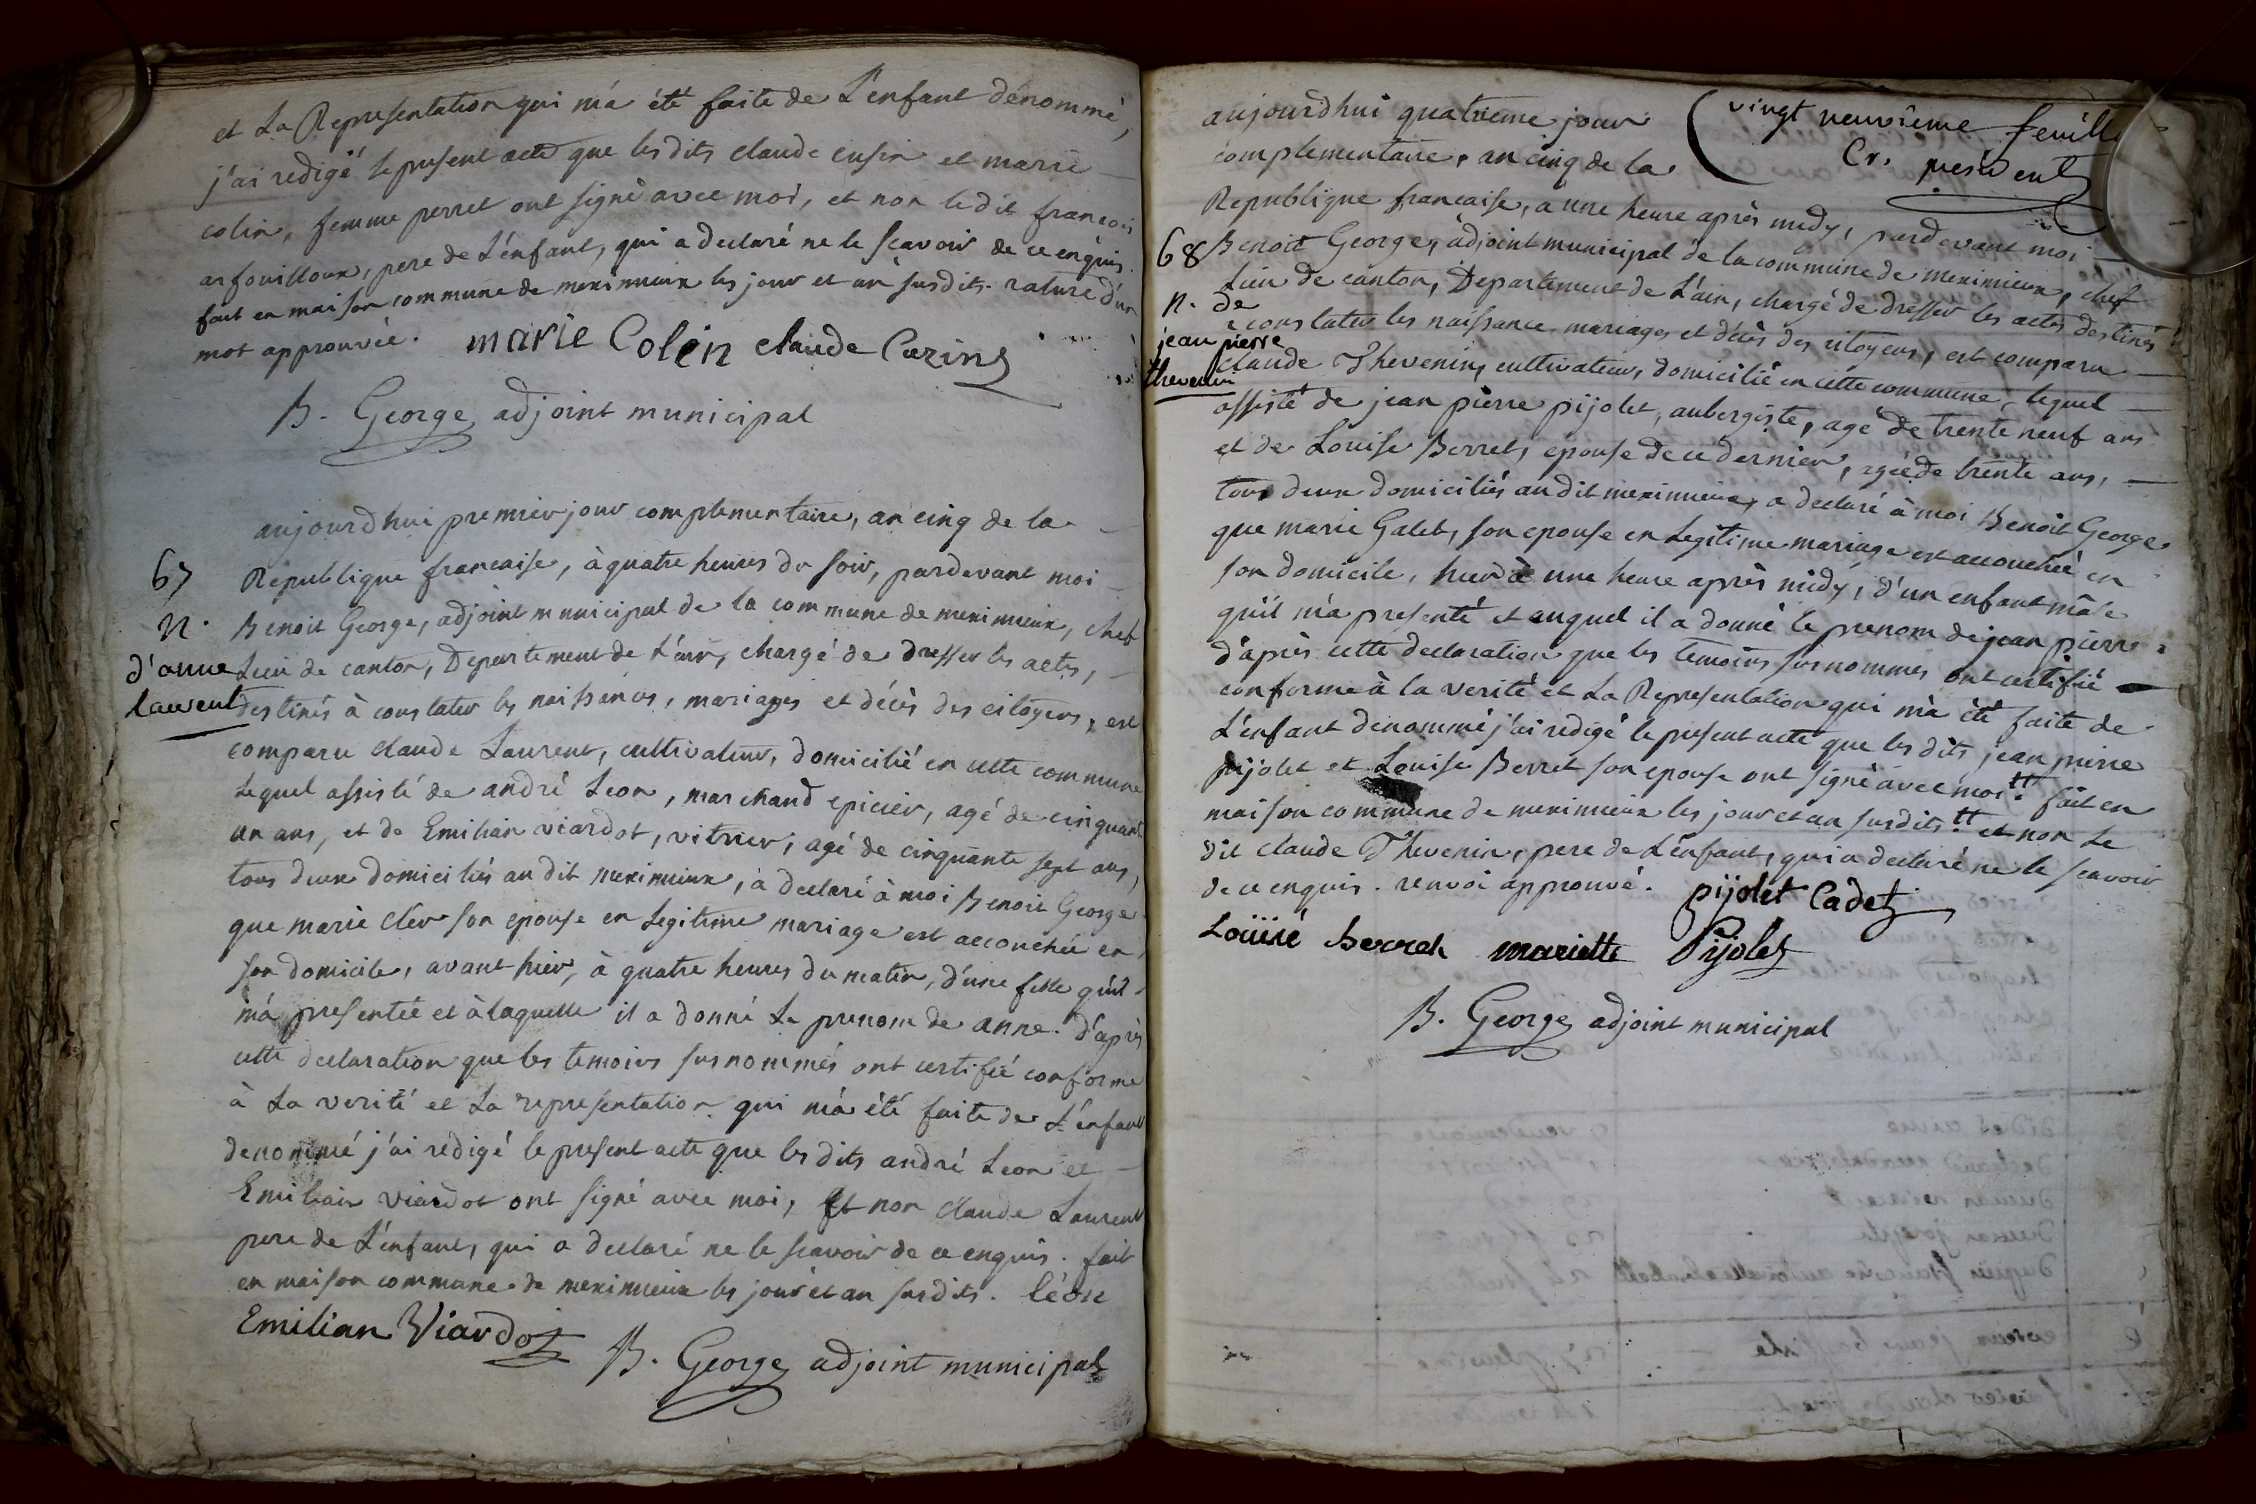 et La Representation qui m'a été faite de L'enfant dénommé,
j'ai redigé le present acte que les dits claude cusin et marie
colin, femme perret ont signé avec moi, et non le dit francois
arfouilloux, pere de L'enfant, qui a declaré ne le scavoir de ce enquis.
fait en maison commune de meximieux les jour et an susdits. rature d'un
mot approuvée.
marie Colin claude Cuzin
B. George adjoint municipal
aujourd'hui premier jour complementaire, an cinq de la
67
Republique francaise, à quatre heures du soir, pardevant moi
n.
Benoit George, adjoint municipal de la commune de meximieux, chef
d'anne
Lieu de canton, Departement de L'ain, chargé de dresser les actes,
Laurent
destinés à constater les naissances, mariages et décès des citoyens, est
comparu claude Laurent, cultivateur, domicilié en cette commune
Lequel assisté de andré Leon, marchand epicier, agé de cinquante
un ans, et de Emilian viardot, vitrier, agé de cinquante sept ans,
tous deux domiciliés au dit meximieux, a declaré à moi Benoit George
que marie cler son epouse en Legitime mariage est accouchée en
son domicile, avant hier, à quatre heures du matin, d'une fille qu'il
m'a presentée et à laquelle il a donné Le prenom de anne. d'après
cette declaration que les temoins susnommés ont certifié conforme
à La verité et La representation qui m'a été faite de L'enfant
denommé j'ai rédigé le present acte que les dits andré Leon et
Emilian viardot ont signé avec moi, Et non claude Laurent
pere de L'enfant, qui a declaré ne le scavoir de ce enquis. fait
en maison commune de meximieux les jour et an susdits. léon
Emilian Viardot
B. George adjoint municipal
vingt neuvième feuille
Cr. président
aujourd'hui quatrieme jour
complementaire, an cinq de la
Republique francaise, a une heure après midy, pardevant moi
68
Benoit George, adjoint municipal de la commune de meximieux, chef
Lieu de canton, Departement de L'ain, chargé de dresser les actes destinés
n. de
à constater les naissance mariages et décès des citoyens, est comparu
jean pierre
claude Thevenin, cultivateur, domicilié en cette commune, lequel
thevenin
assisté de jean pierre pijolet, aubergiste, agé de trente neuf ans
et de Louise Berret, epouse de ce dernier, agée de trente ans,
tous deux domiciliés au dit meximieux, a declaré à moi Benoit George
que marie Galet, son epouse en Legitime mariage est accouchée en
son domicile, hier à une heure après midy, d'un enfant mâle
qu'il m'a presenté et auquel il a donné le prenom de jean pierre.
d'après cette declaration que les temoins susnommes ont certifié
conforme à la verité et La Representation qui m'a été faite de
L'enfant dénommé j'ai redigé le present acte que les dits jean pierre
pijolet et Louise Berret son epouse ont signé avec moi. fait en
maison commune de meximieux les jour et an susdits. et non Le
dit claude Thevenin, pere de L'enfant, qui a declaré ne le scavoir
de ce enquis. renvoi approuvé.
pijolet Cadet
Louise berret mariette Pijolet
B. George adjoint municipal